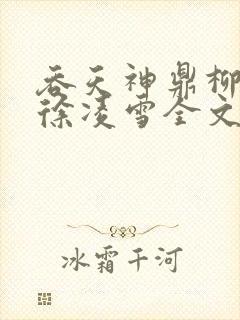 吞天神鼎柳
徐凌雪全文
冰霜千河